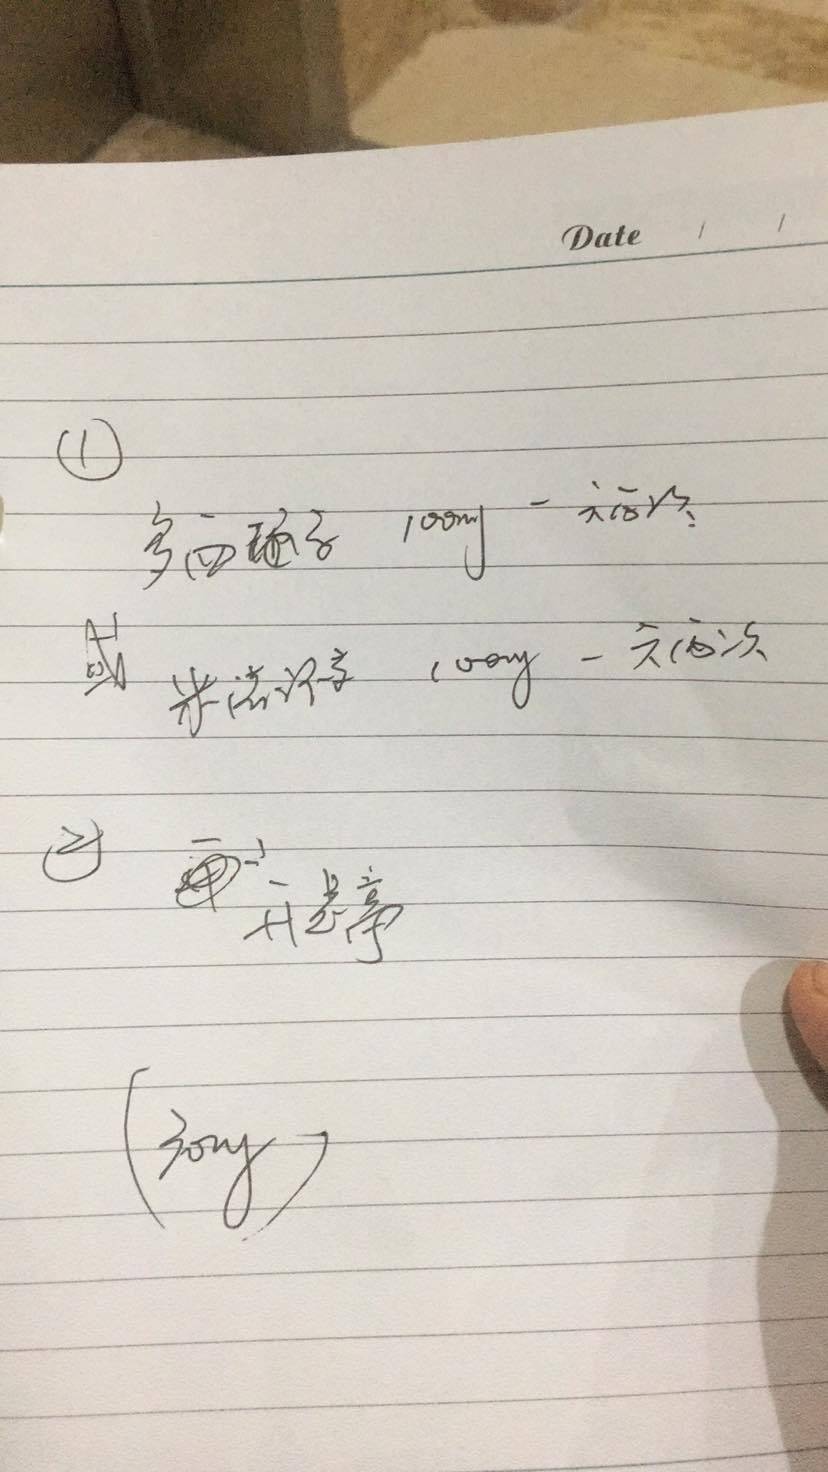 Date / /
①
多西环素 100mg 一天两次
或 米诺环素 100mg 一天两次
②
(30mg)